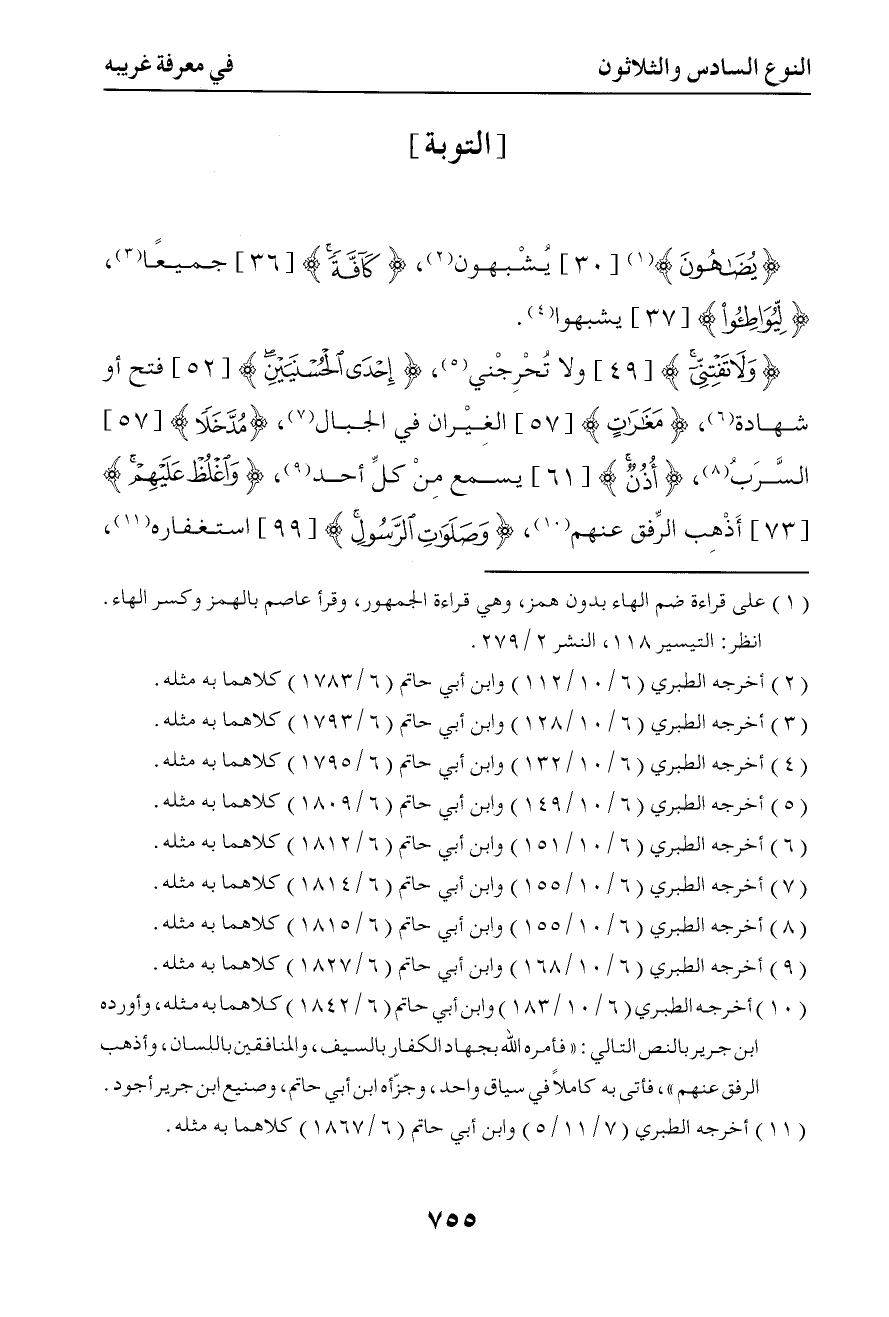 النوع السادس والثلاثون في معرفة غريبه
[ التوبة ]
﴿ يُضَٰهُونَ ﴾(١) [ ٣٠ ] يُشْبهون(٢)، ﴿ كَآفَّةٗۚ ﴾ [ ٣٦ ] جميعًا(٣)،
﴿ لِّيُوَاطِـُٔواْ ﴾ [ ٣٧ ] يشبهوا(٤).
﴿ وَلَا تَفۡتِنِّيٓۚ ﴾ [ ٤٩ ] ولا تُحْرِجْني(٥)، ﴿ إِحۡدَى ٱلۡحُسۡنَيَيۡنِۖ ﴾ [ ٥٢ ] فتح أو
شهادة(٦)، ﴿ مَغَٰرَٰتٍ ﴾ [ ٥٧ ] الغِيْران في الجبال(٧)، ﴿ مُدَّخَلٗا ﴾ [ ٥٧ ]
السَّرَبُ(٨)، ﴿ أُذُنٞۚ ﴾ [ ٦١ ] يسمع مِنْ كلِّ أحد(٩)، ﴿ وَٱغۡلُظۡ عَلَيۡهِمۡۚ ﴾
[ ٧٣ ] أَذْهِب الرِّفق عنهم(١٠)، ﴿ وَصَلَوَٰتِ ٱلرَّسُولِۚ ﴾ [ ٩٩ ] استغفاره(١١)،
( ١ ) على قراءة ضم الهاء بدون همز، وهي قراءة الجمهور، وقرأ عاصم بالهمز وكسر الهاء .
انظر: التيسير ١١٨، النشر ٢ / ٢٧٩ .
( ٢ ) أخرجه الطبري ( ٦ / ١٠ / ١١٢ ) وابن أبي حاتم ( ٦ / ١٧٨٣ ) كلاهما به مثله .
( ٣ ) أخرجه الطبري ( ٦ / ١٠ / ١٢٨ ) وابن أبي حاتم ( ٦ / ١٧٩٣ ) كلاهما به مثله .
( ٤ ) أخرجه الطبري ( ٦ / ١٠ / ١٣٢ ) وابن أبي حاتم ( ٦ / ١٧٩٥ ) كلاهما به مثله .
( ٥ ) أخرجه الطبري ( ٦ / ١٠ / ١٤٩ ) وابن أبي حاتم ( ٦ / ١٨٠٩ ) كلاهما به مثله .
( ٦ ) أخرجه الطبري ( ٦ / ١٠ / ١٥١ ) وابن أبي حاتم ( ٦ / ١٨١٢ ) كلاهما به مثله .
( ٧ ) أخرجه الطبري ( ٦ / ١٠ / ١٥٥ ) وابن أبي حاتم ( ٦ / ١٨١٤ ) كلاهما به مثله .
( ٨ ) أخرجه الطبري ( ٦ / ١٠ / ١٥٥ ) وابن أبي حاتم ( ٦ / ١٨١٥ ) كلاهما به مثله .
( ٩ ) أخرجه الطبري ( ٦ / ١٠ / ١٦٨ ) وابن أبي حاتم ( ٦ / ١٨٢٧ ) كلاهما به مثله .
( ١٠ ) أخرجه الطبري ( ٦ / ١٠ / ١٨٣ ) وابن أبي حاتم ( ٦ / ١٨٤٢ ) كلاهما به مثله، وأورده
ابن جرير بالنص التالي : « فأمره الله بجهاد الكفار بالسيف، والمنافقين باللسان، وأذهب
الرفق عنهم »، فأتى به كاملاً في سياق واحد، وجزّأه ابن أبي حاتم، وصنيع ابن جرير أجود .
( ١١ ) أخرجه الطبري ( ٧ / ١١ / ٥ ) وابن أبي حاتم ( ٦ / ١٨٦٧ ) كلاهما به مثله .
٧٥٥